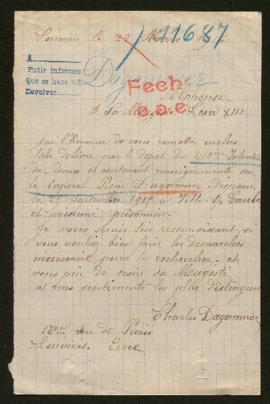 Louviers le 22 
11687
A
Pedir informes
que se hace
Devolver
Fech
e.a.e.
Alphonse
A Sa Majesté XIII
J'ai l'honneur de vous remettre
fiche délivré par le Dépôt du Infanterie
de et contenant renseignements sur
le caporal René Dagommer Disparu
le Septembre 1915 à Ville-S/ Tourbe
et prisonnier.
Je vous serais très reconnaissant si
vous vouliez bien faire les démarches
nécessaires pour le rechercher et
vous prie de croire sa Majesté
à mes sentiments les plus distingués
Charles Dagommer
rue de Paris
Louviers. Eure